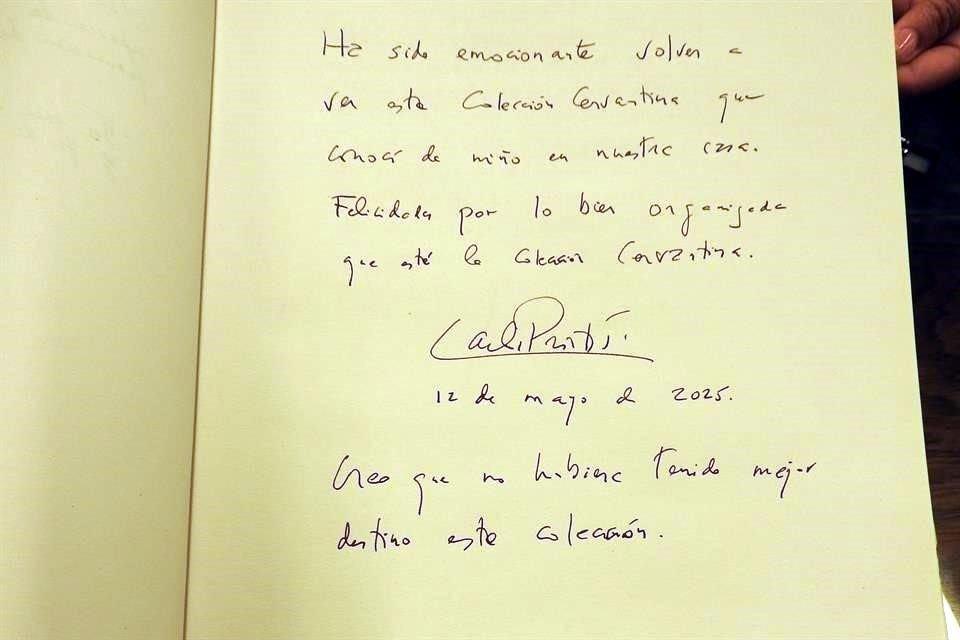 Ha sido emocionante volver a
ver esta Colección Cervantina que
conocí de niño en nuestra casa.
por lo bien organizada
que esté la colección Cervantina.
12 de mayo de 2025.
Creo que no hubiera tenido mejor
destino esta colección.